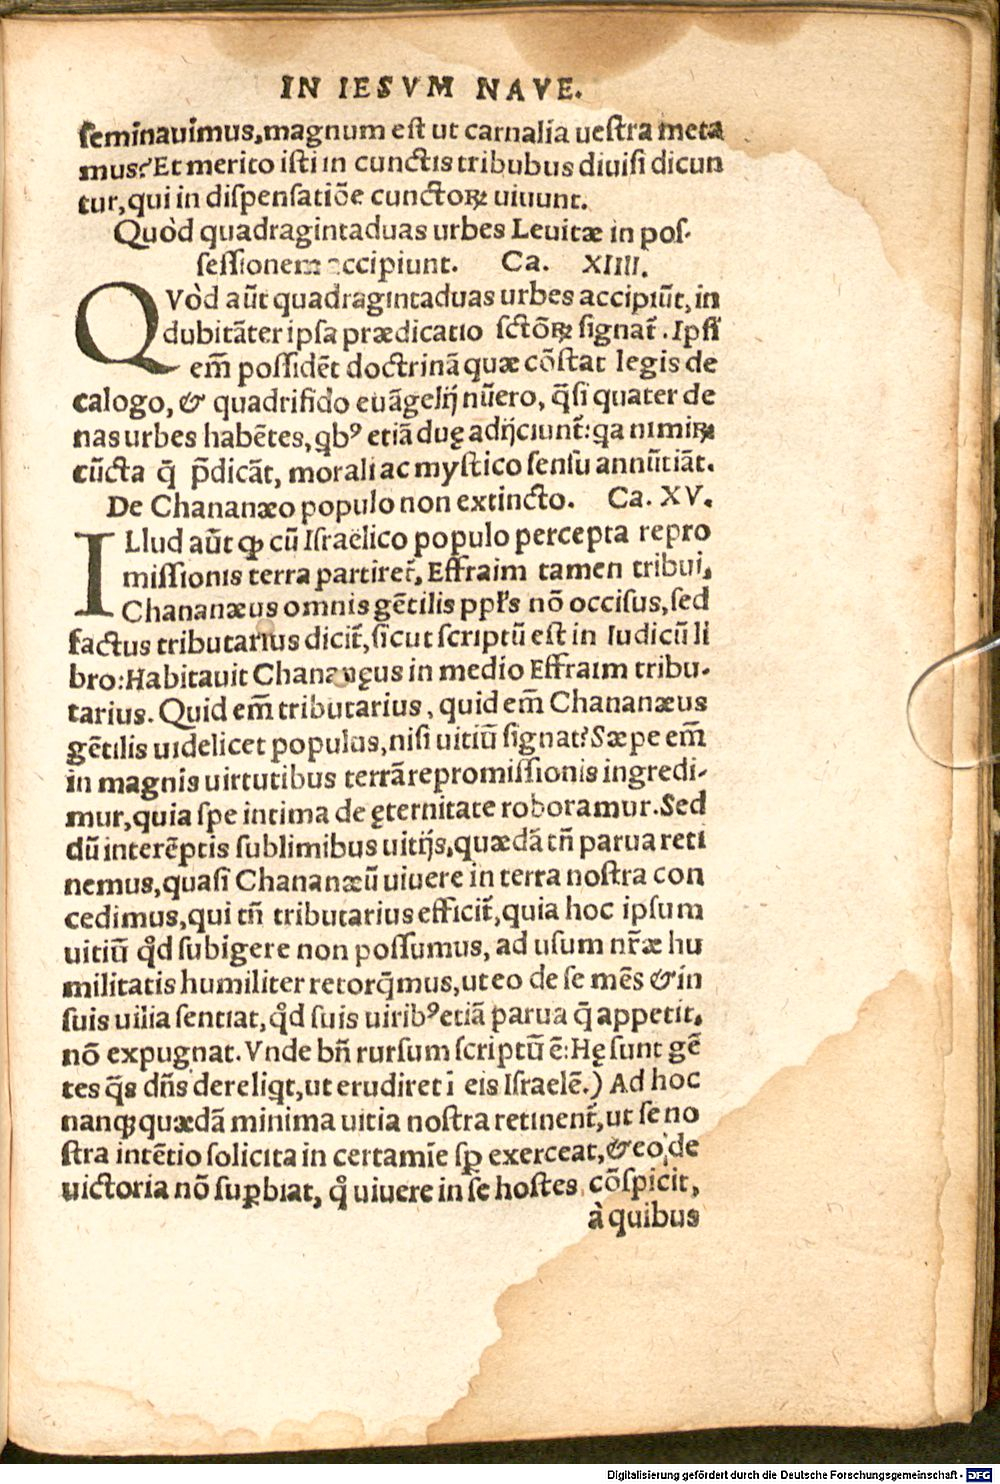 IN IESVM NAVE.
seminauimus,magnum est ut carnalia uestra meta
mus?Et merito isti in cunctis tribubus diuisi dicun
tur,qui in dispensatiõe cunctoꝝ uiuunt.
Quòd quadragintaduas urbes Leuitæ in pos-
sessionem accipiunt. Ca. XIIII.
QVòd aũt quadragintaduas urbes accipiũt,in
dubitãter ipsa prædicatio sctõꝝ signat̃.Ipsi
em̃ possidẽt doctrinã quæ cõstat legis de
calogo,& quadrifido euãgelij nũero, q̃si quater de
nas urbes habẽtes,qbꝰ etiã duę adijciunt̃:qa nimiꝝ
cũcta q̃ p̃dicãt, morali ac mystico sensu annũtiãt.
De Chananæo populo non extincto. Ca. XV.
ILlud aũt ꝙ cũ Israëlico populo percepta repro
missionis terra partiret̃, Effraim tamen tribui,
Chananæus omnis gẽtilis ppl̃s nõ occisus,sed
factus tributarius dicit̃,sicut scriptũ est in Iudicũ li
bro:Habitauit Chananęus in medio Effraim tribu-
tarius. Quid em̃ tributarius, quid em̃ Chananæus
gẽtilis uidelicet populus,nisi uitiũ signat?Sæpe em̃
in magnis uirtutibus terrã repromissionis ingredi-
mur,quia spe intima de ęternitate roboramur.Sed
dũ interẽptis sublimibus uitijs,quædã tñ parua reti
nemus,quasi Chananæũ uiuere in terra nostra con
cedimus,qui tñ tributarius efficit̃,quia hoc ipsum
uitiũ qd̃ subigere non possumus, ad usum nr̃æ hu
militatis humiliter retorq̃mus,ut eo de se mẽs & in
suis uilia sentiat,qd̃ suis uiribꝰ etiã parua q̃ appetit,
nõ expugnat.Vnde bñ rursum scriptũ ẽ:Hę sunt gẽ
tes q̃s dñs dereliqt,ut erudiret ĩ eis Israelẽ.) Ad hoc
nanqꝫ quædã minima uitia nostra retinent̃,ut se no
stra intẽtio solicita in certamĩe sꝑ exerceat,& eo de
uictoria nõ suꝑbiat, q̃ uiuere in se hostes cõspicit,
à quibus
Digitalisierung gefördert durch die Deutsche Forschungsgemeinschaft - DFG